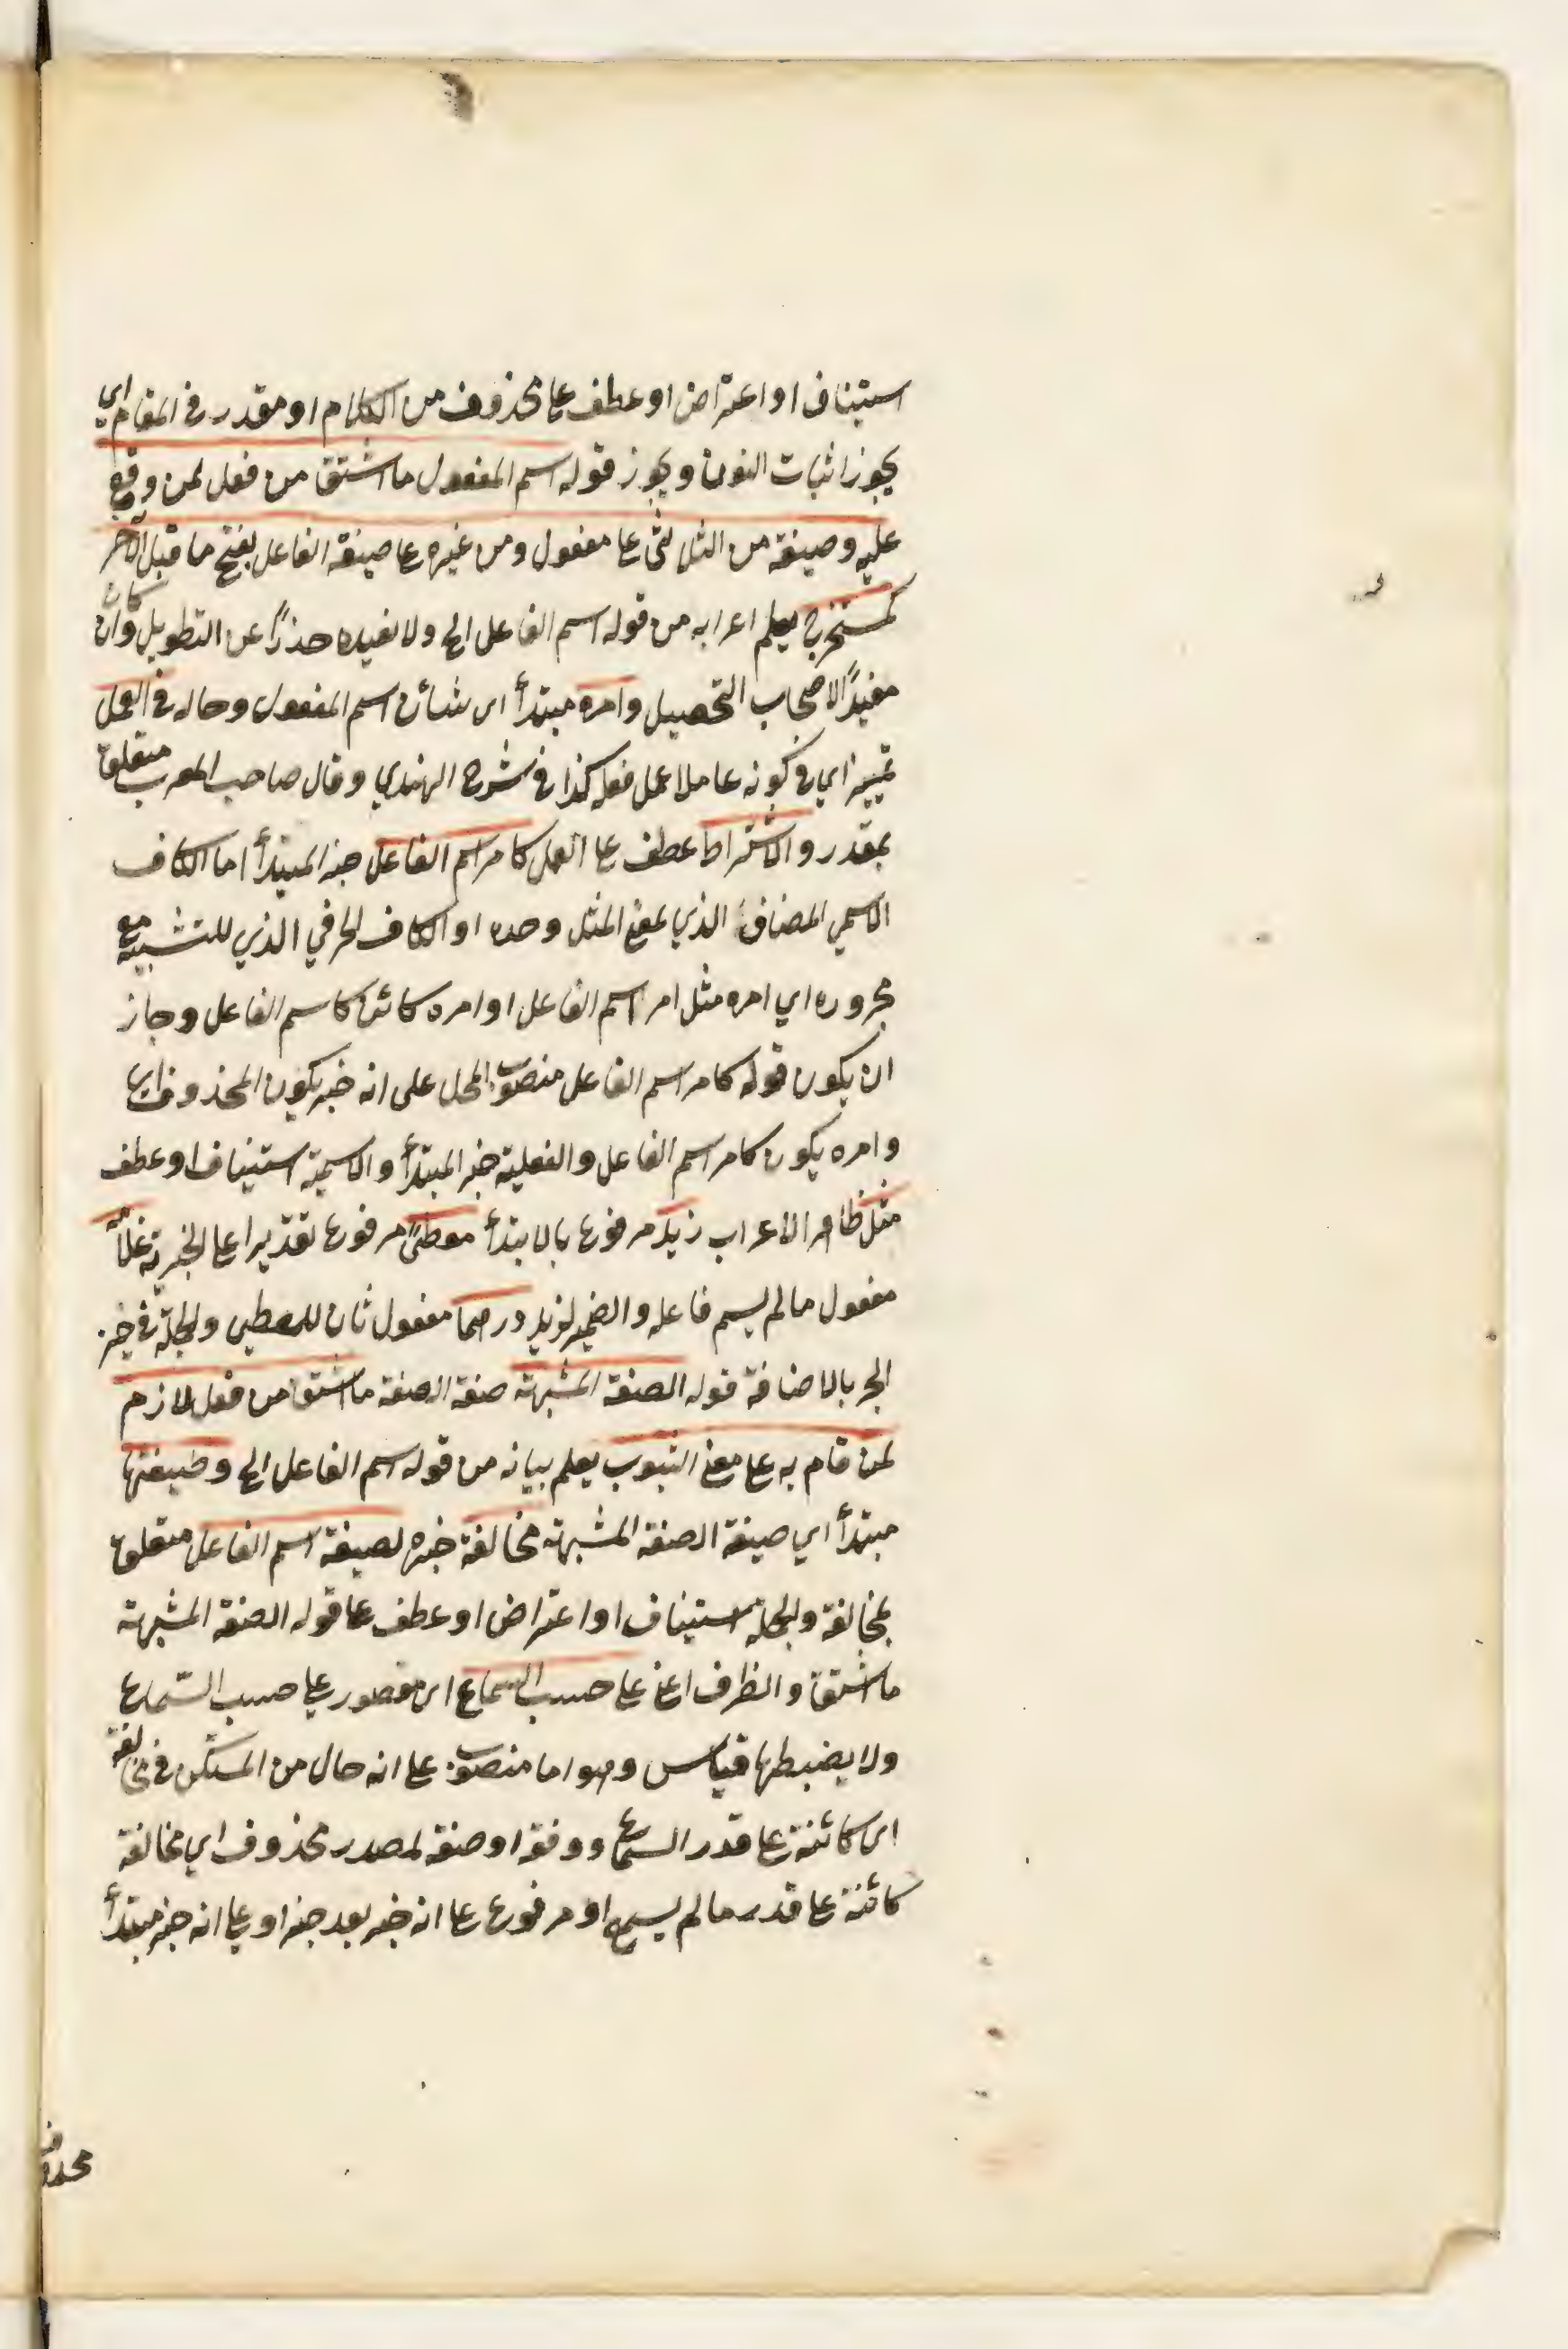 استيناف او اعتراض او عطف على محذوف من الكلام او مقدر في المقام اي
يجوز اثبات النون ويجوز قوله اسم المفعول ما اشتق من فعل لمن وقع
عليه وصيغته من الثلاثي على مفعول ومن غيره على صيغة الفاعل بفتح ما قبل الآخر
كمستخرج يعلم اعرابه من قوله اسم الفاعل الخ ولا نفيده حذرًا عن التطويل وان كان
مفيدًا لاصحاب التحصيل وامره مبتدأ اى شأن اسم المفعول وحاله في العمل
تمييز اي في كونه عاملا عمل فعله كذا في شرح الهندي وقال صاحب المعرب متعلق
بمقدر والاشتراط عطف على العمل كامر اسم الفاعل خبر المبتدأ اما الكاف
الاسمي المضاف الذي بمعنى المثل وحده او الكاف الحرفي الذي للتشبيه مع
مجروره اي امره مثل امر اسم الفاعل او امره كائن كاسم الفاعل وجاز
ان يكون قوله كامر اسم الفاعل منصوب المحل على انه خبر يكون المحذوف اي
وامره يكون كامر اسم الفاعل والفعلية خبر المبتدأ والاسمية استيناف او عطف
مثل ظاهر الاعراب زيد مرفوع بالابتدأ معطىً مرفوع تقديرا على الخبرية غلامه
مفعول ما لم يسم فاعله والضمير لزيد درهما مفعول ثان للمعطى والجملة في حيز
الجر بالاضافة قوله الصفة المشبهة صفة الصفة ما اشتق من فعل لازم
لمن قام به على معنى الثبوت يعلم بيانه من قوله اسم الفاعل الخ وصيغتها
مبتدأ اي صيغة الصفة المشبهة مخالفة خبره لصيغة اسم الفاعل متعلق
بمخالفة والجملة استيناف او اعتراض او عطف على قوله الصفة المشبهة
ما اشتق والظرف اعنى على حسب السماع اى مقصور على حسب السّماع
ولا يضبطها قياس وهو اما منصوب على انه حال من المستكن في مخالفة
اى كائنة على قدر السماع ووفقه او صفة لمصدر محذوف اي مخالفة
كائنة على قدر ما لم يسمع او مرفوع على انه خبر بعد خبر او على انه خبر مبتدأ
محذوف